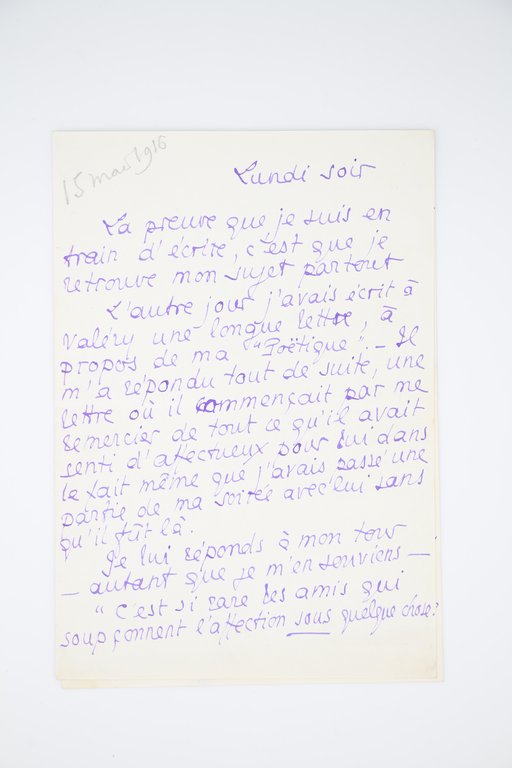 15 mars 1916
Lundi soir
La preuve que je suis en
train d'écrire, c'est que je
retrouve mon sujet partout
L'autre jour j'avais écrit à
Valéry une longue lettre, à
propos de ma "Poëtique". – Il
m'a répondu tout de suite, une
lettre où il commençait par me
remercier de tout ce qu'il avait
senti d'affectueux pour lui dans
le fait même que j'avais passé une
partie de ma soirée avec lui sans
qu'il fût là.
Je lui réponds à mon tour
– autant que je m'en souviens –
"C'est si rare les amis qui
soupçonnent l'affection sous quelque chose!